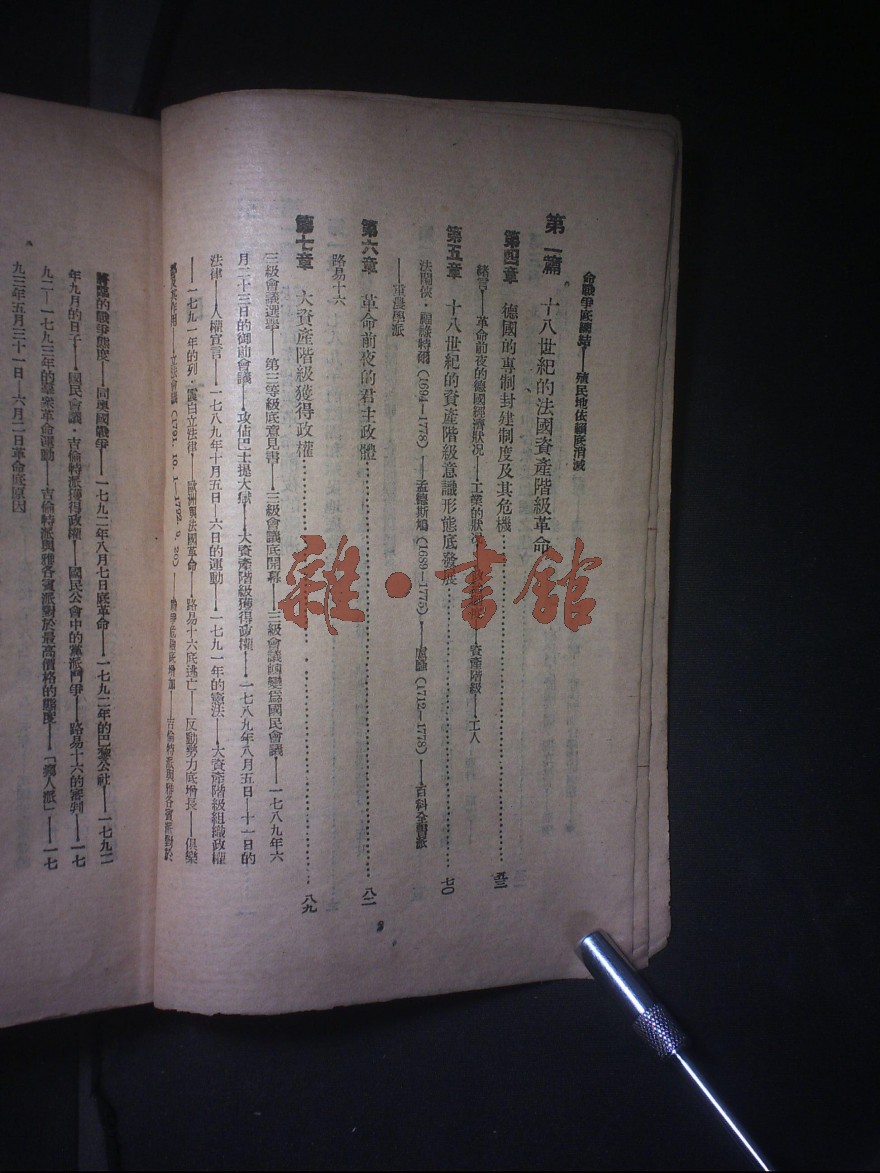 命戰爭底總結——殖民地依賴底消滅
第一篇 十八世紀的法國資產階級革命
第四章 德國的專制封建制度及其危機
緒言——革命前夜的德國經濟狀況——工業的狀況 資產階級——工人
第五章 十八世紀的資產階級意識形態底發展 七〇
法蘭俠·福祿特爾(1694—1778)——孟德斯鳩(1689—1775)——盧騷(1712—1778)——百科全書派
——重農學派
第六章 革命前夜的君主政體 八二
路易十六
第七章 大資產階級獲得政權 八九
三級會議選舉——第三等級底意見書——三級會議底開幕——三級會議轉變為國民會議——一七八九年六
月二十三日的御前會議——攻佔巴士提大獄——大資產階級獲得政權——一七八九年八月五日—十一日的
法律——人權宣言——一七八九年十月五日—六日的運動——一七九一年的憲法——大資產階級組織政權
——一七九一年的列·霞白立法律——歐洲與法國革命——路易十六底逃亡——反動勢力底增長——俱樂
部及其作用——立法會議(1791.10.1—1792.9.20)——戰爭危險底增加——吉倫特派與雅各賓派對於
將臨的戰爭態度——同奧國戰爭——一七九二年八月七日底革命——一七九二年的巴黎公社——一七九二
年九月的日子——國民會議·吉倫特派獲得政權——國民公會中的黨派鬥爭——路易十六的審判——一七
九二—一七九三年的羣衆革命運動——吉倫特派與雅各賓派對於最高價格的態度——「瘋人派」——一七
九三年五月三十一日—六月二日革命底原因
雜·書館